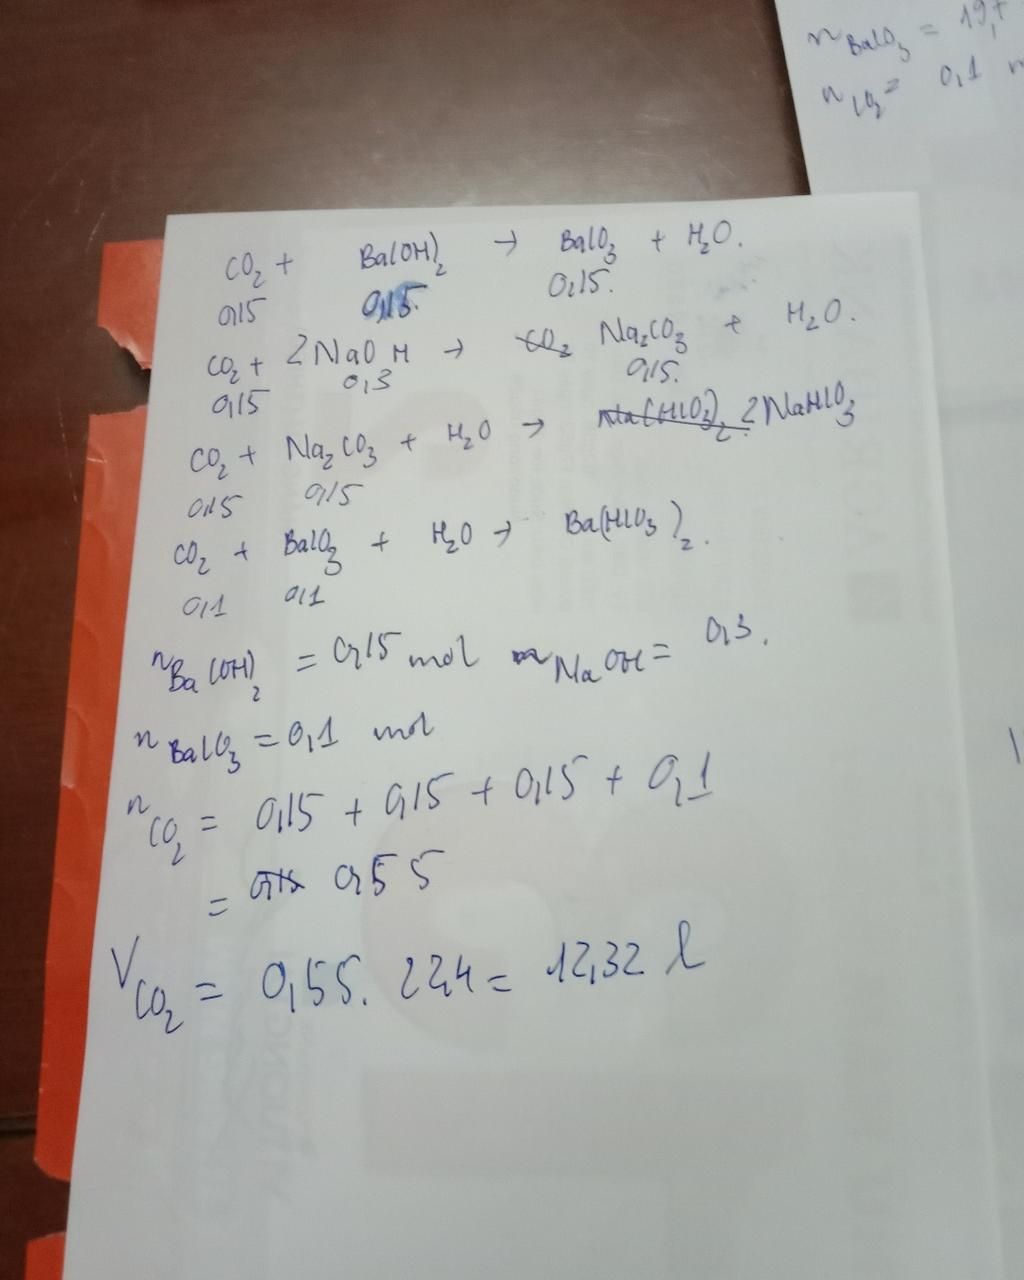 n BaCO3 = 19,7
n CO2 = 0,1
CO2 + Ba(OH)2 → BaCO3 + H2O.
0,15 0,15. 0,15.
CO2 + 2NaOH → CO2 Na2CO3 + H2O.
0,15 0,3 0,15.
CO2 + Na2CO3 + H2O → Na(HCO3)2 2NaHCO3
0,15 0,15
CO2 + BaCO3 + H2O → Ba(HCO3)2.
0,1 0,1
n Ba(OH)2 = 0,15 mol n NaOH = 0,3.
n BaCO3 = 0,1 mol
n CO2 = 0,15 + 0,15 + 0,15 + 0,1
= 0,55
V CO2 = 0,55. 22,4 = 12,32 l